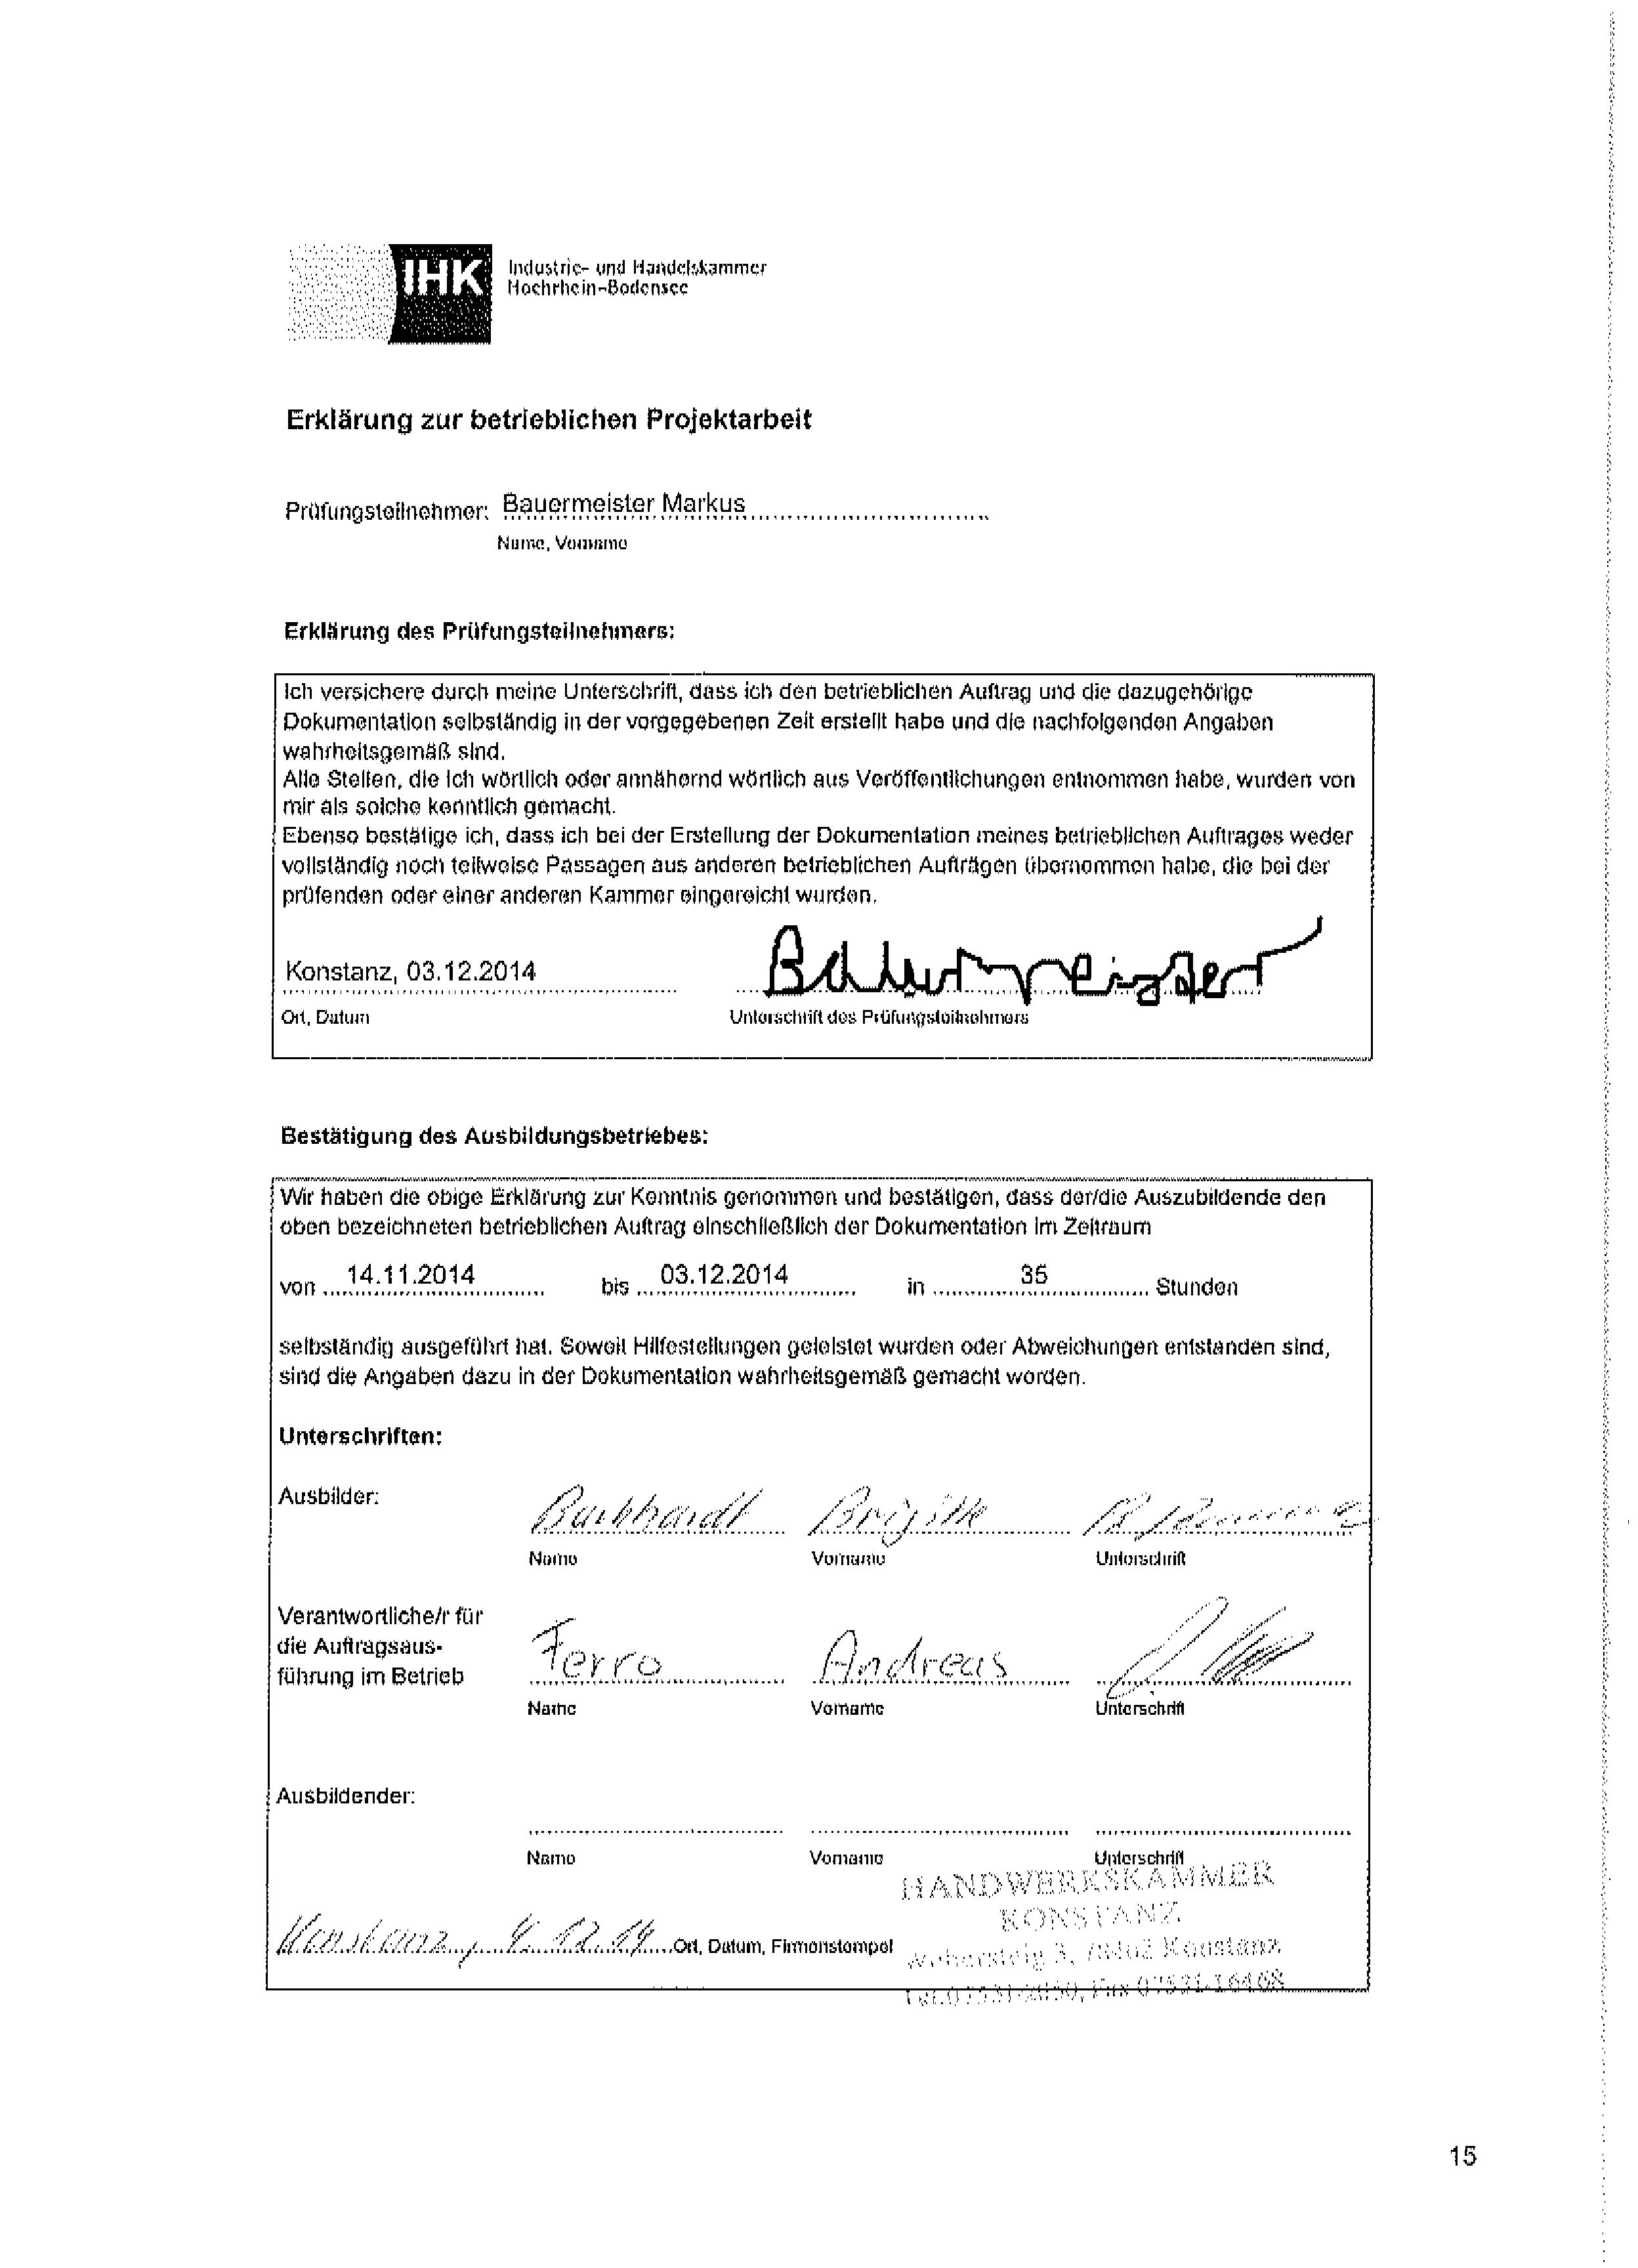 IHK
Industrie- und Handelskammer
Hochrhein-Bodensee
Erklärung zur betrieblichen Projektarbeit
Prüfungsteilnehmer: Bauermeister Markus
Name, Vorname
Erklärung des Prüfungsteilnehmers:
Ich versichere durch meine Unterschrift, dass ich den betrieblichen Auftrag und die dazugehörige
Dokumentation selbständig in der vorgegebenen Zeit erstellt habe und die nachfolgenden Angaben
wahrheitsgemäß sind.
Alle Stellen, die ich wörtlich oder annähernd wörtlich aus Veröffentlichungen entnommen habe, wurden von
mir als solche kenntlich gemacht.
Ebenso bestätige ich, dass ich bei der Erstellung der Dokumentation meines betrieblichen Auftrages weder
vollständig noch teilweise Passagen aus anderen betrieblichen Aufträgen übernommen habe, die bei der
prüfenden oder einer anderen Kammer eingereicht wurden.
Konstanz, 03.12.2014 Bauermeister
Ort, Datum Unterschrift des Prüfungsteilnehmers
Bestätigung des Ausbildungsbetriebes:
Wir haben die obige Erklärung zur Kenntnis genommen und bestätigen, dass der/die Auszubildende den
oben bezeichneten betrieblichen Auftrag einschließlich der Dokumentation im Zeitraum
von 14.11.2014 bis 03.12.2014 in 35 Stunden
selbständig ausgeführt hat. Soweit Hilfestellungen geleistet wurden oder Abweichungen entstanden sind,
sind die Angaben dazu in der Dokumentation wahrheitsgemäß gemacht worden.
Unterschriften:
Ausbilder: Brigitte
Name Vorname Unterschrift
Verantwortliche/r für
die Auftragsaus-
führung im Betrieb Ferro Andreas
Name Vorname Unterschrift
Ausbildender:
Name Vorname Unterschrift
HANDWERKSKAMMER
KONSTANZ
Konstanz, 4.12.14 Ort, Datum, Firmenstempel
Webersteig 3, 78462 Konstanz
15